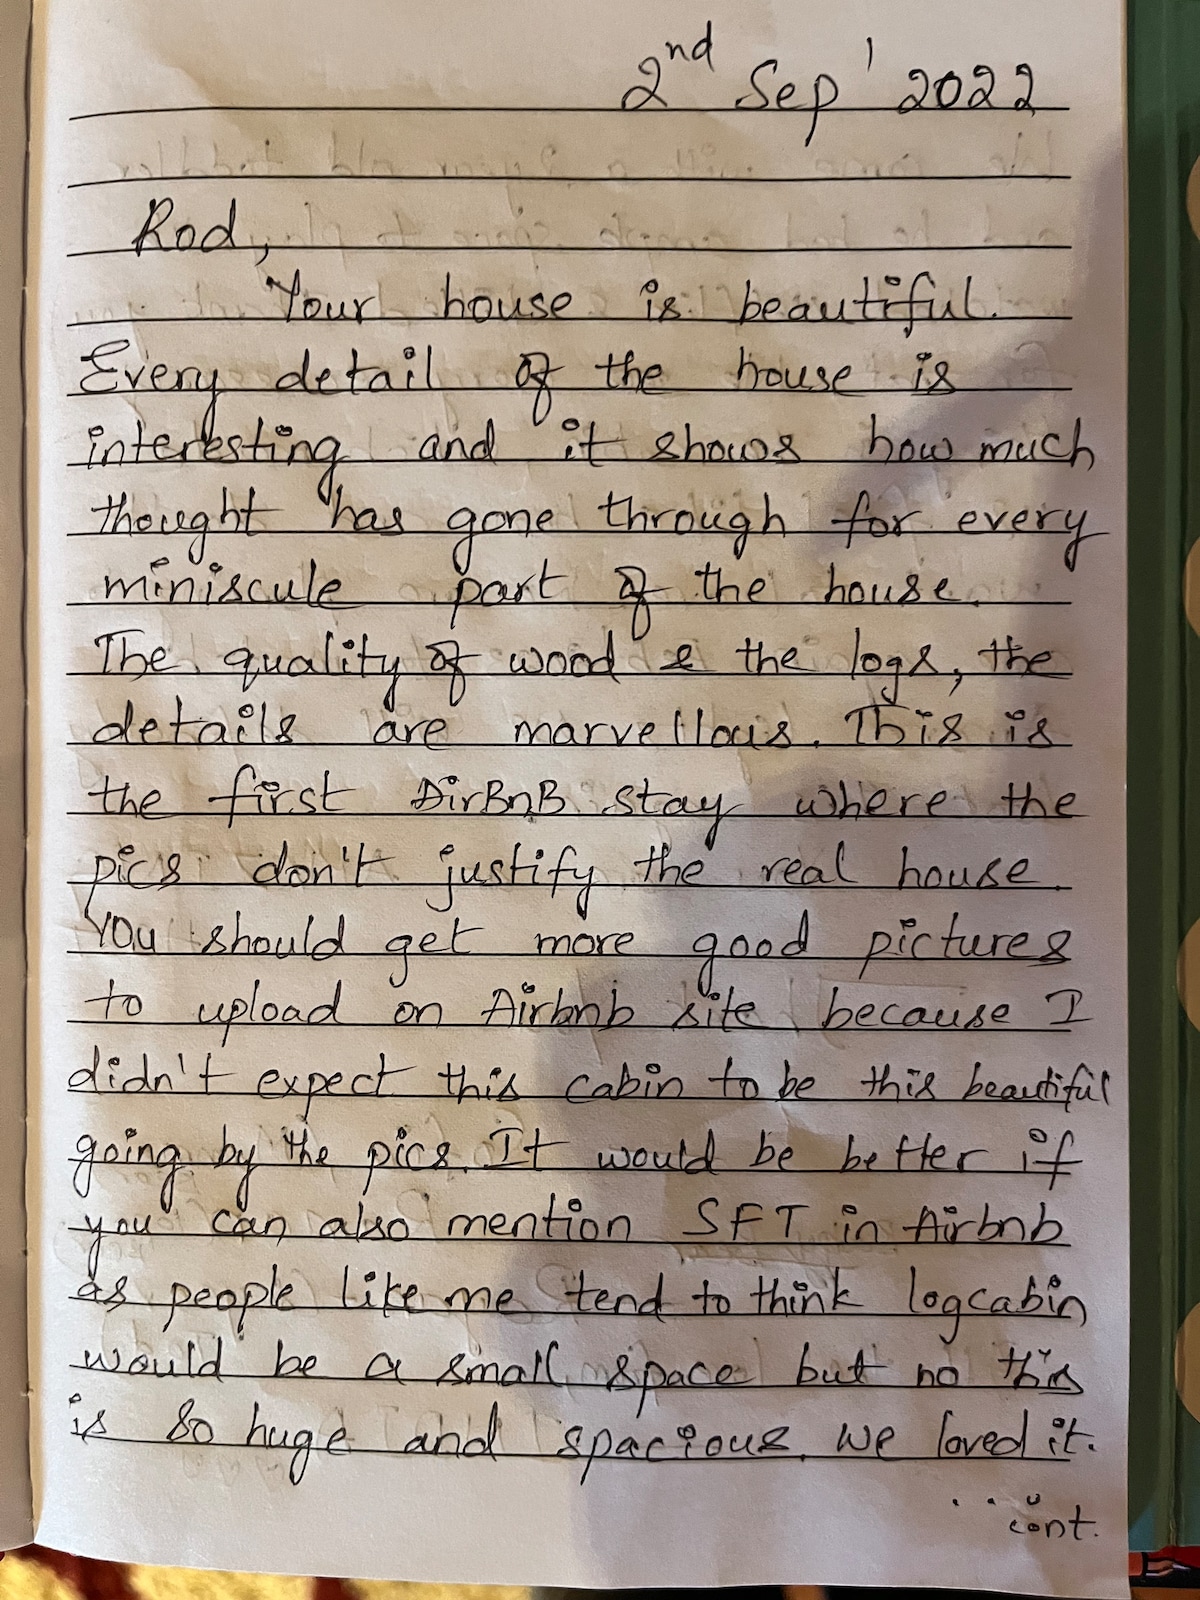 2nd Sep' 2022
Rod,
Your house is beautiful.
Every detail of the house is
interesting and it shows how much
thought has gone through for every
miniscule part of the house.
The quality of wood & the logs, the
details are marvellous. This is
the first AirBnB stay where the
pics don't justify the real house.
You should get more good pictures
to upload on Airbnb site because I
didn't expect this cabin to be this beautiful
going by the pics. It would be better if
you can also mention SFT in Airbnb
as people like me tend to think logcabin
would be a small space but no this
is so huge and spacious. We loved it.
...cont.